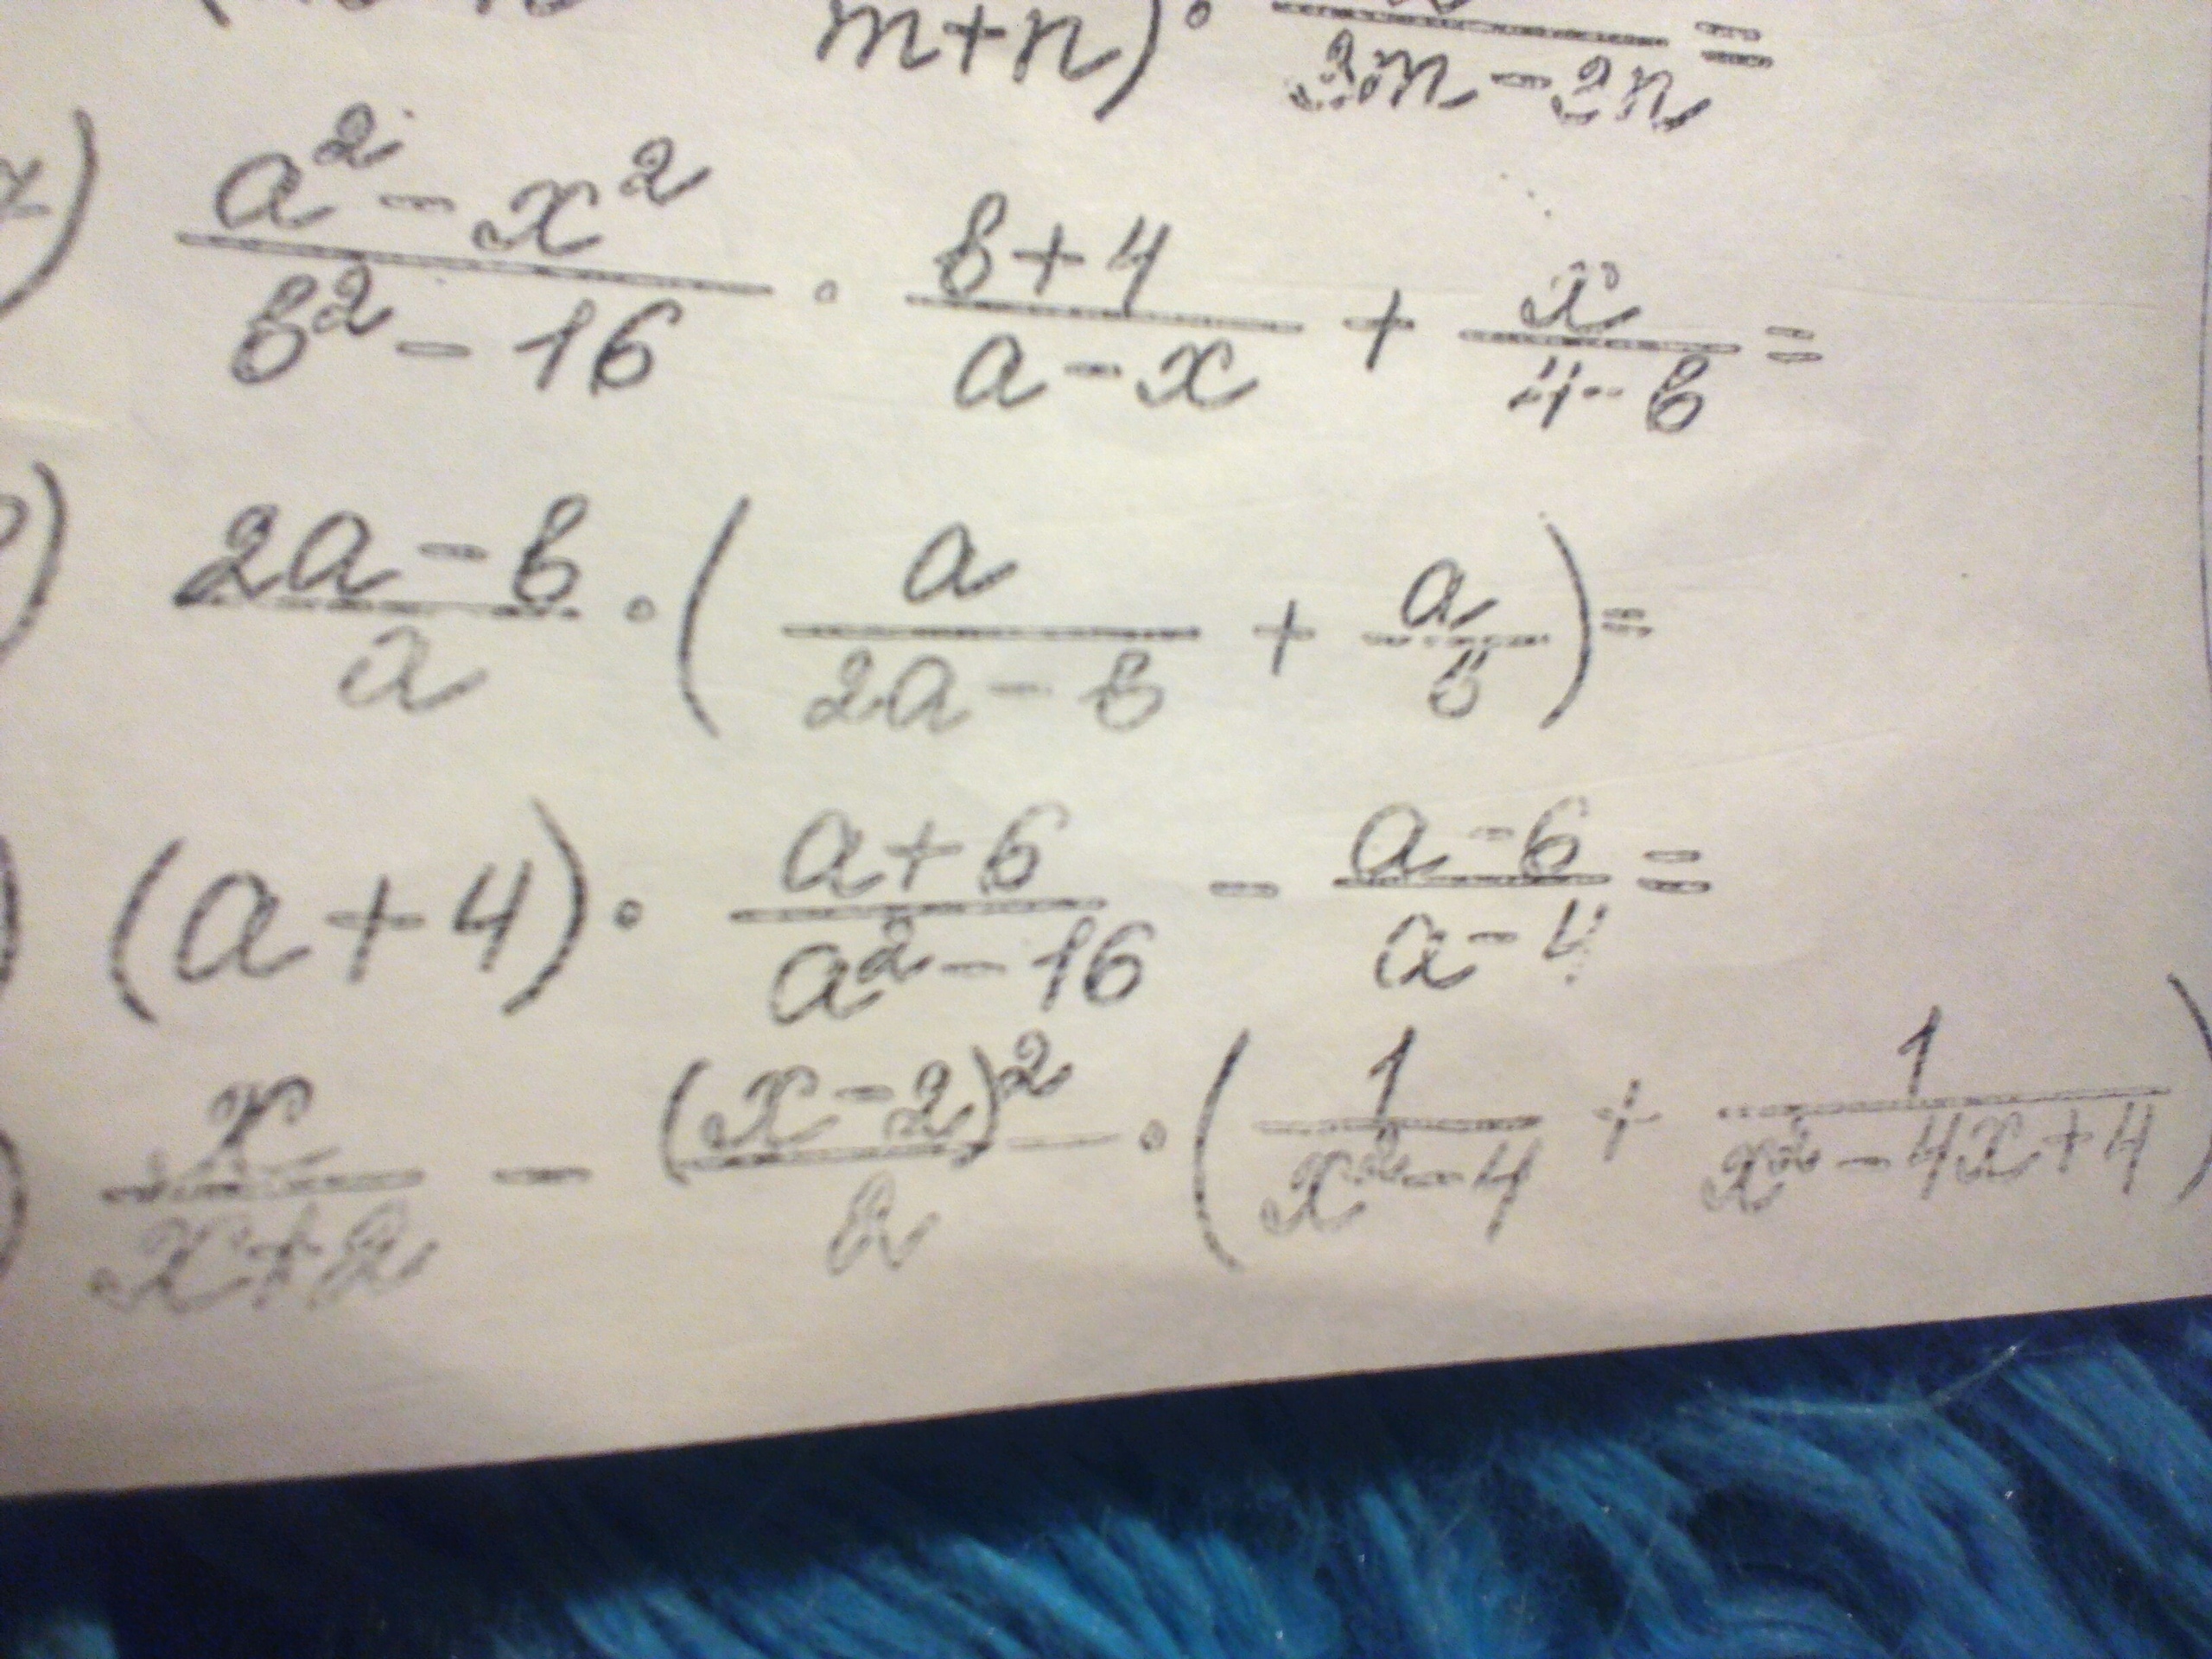 m+n) · / 2m-2n =
7) a²-x² / b²-16 · b+4 / a-x + x / 4-b =
) 2a-b / a · ( a / 2a-b + a / b ) =
) (a+4) · a+6 / a²-16 - a-6 / a-4 =
) x / x+2 - (x-2)² / 2 · ( 1 / x²-4 + 1 / x²-4x+4 )